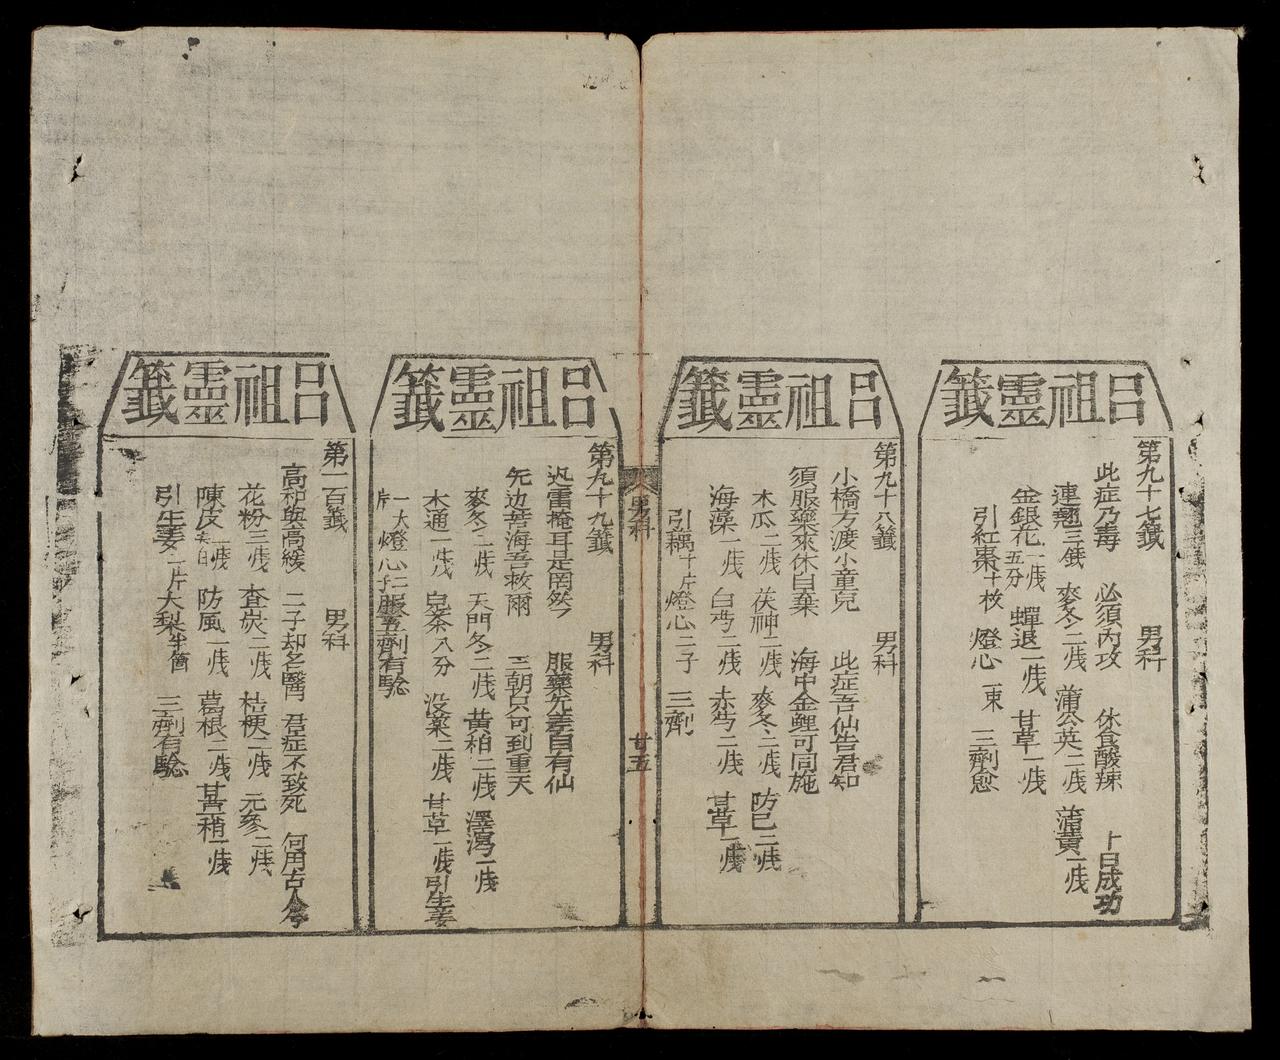 呂祖靈籤
第九十七籤 男科
此症乃毒 必須內攻 休食酸辣 十日成功
連翹三錢 麥冬二戔 蒲公英二戔 蒲黃一戔
金銀花一戔五分 蟬退一戔 甘草一戔
引紅棗十枚 燈心一束 三劑愈
呂祖靈籤
第九十八籤 男科
小橋方渡小童兒 此症吾仙告君知
須服藥來休自棄 海中金鯉可同施
木瓜二戔 茯神二戔 麥冬二戔 防巳三戔
海藻一戔 白芍二戔 赤芍二戔 甘草一戔
引藕十片 燈心二子 三劑
男科 廿五
呂祖靈籤
第九十九籤 男科
迅雷掩耳是罔然 服藥先差自有仙
无边苦海吾救爾 三朝只可到重天
麥冬二戔 天門冬二戔 黃柏二戔 澤瀉一戔
木通一戔 兒茶八分 没藥二戔 甘草一戔 引生姜
一大片 燈心仁子服五劑有騐
呂祖靈籤
第一百籤 男科
高和與高緩 二子却名醫 君症不致死 何用古人兮
花粉三戔 查炭二戔 桔梗二戔 元參二戔
陳皮去白一戔 防風一戔 葛根二戔 甘草稍一戔
引生姜一片 大梨半箇 三劑有騐